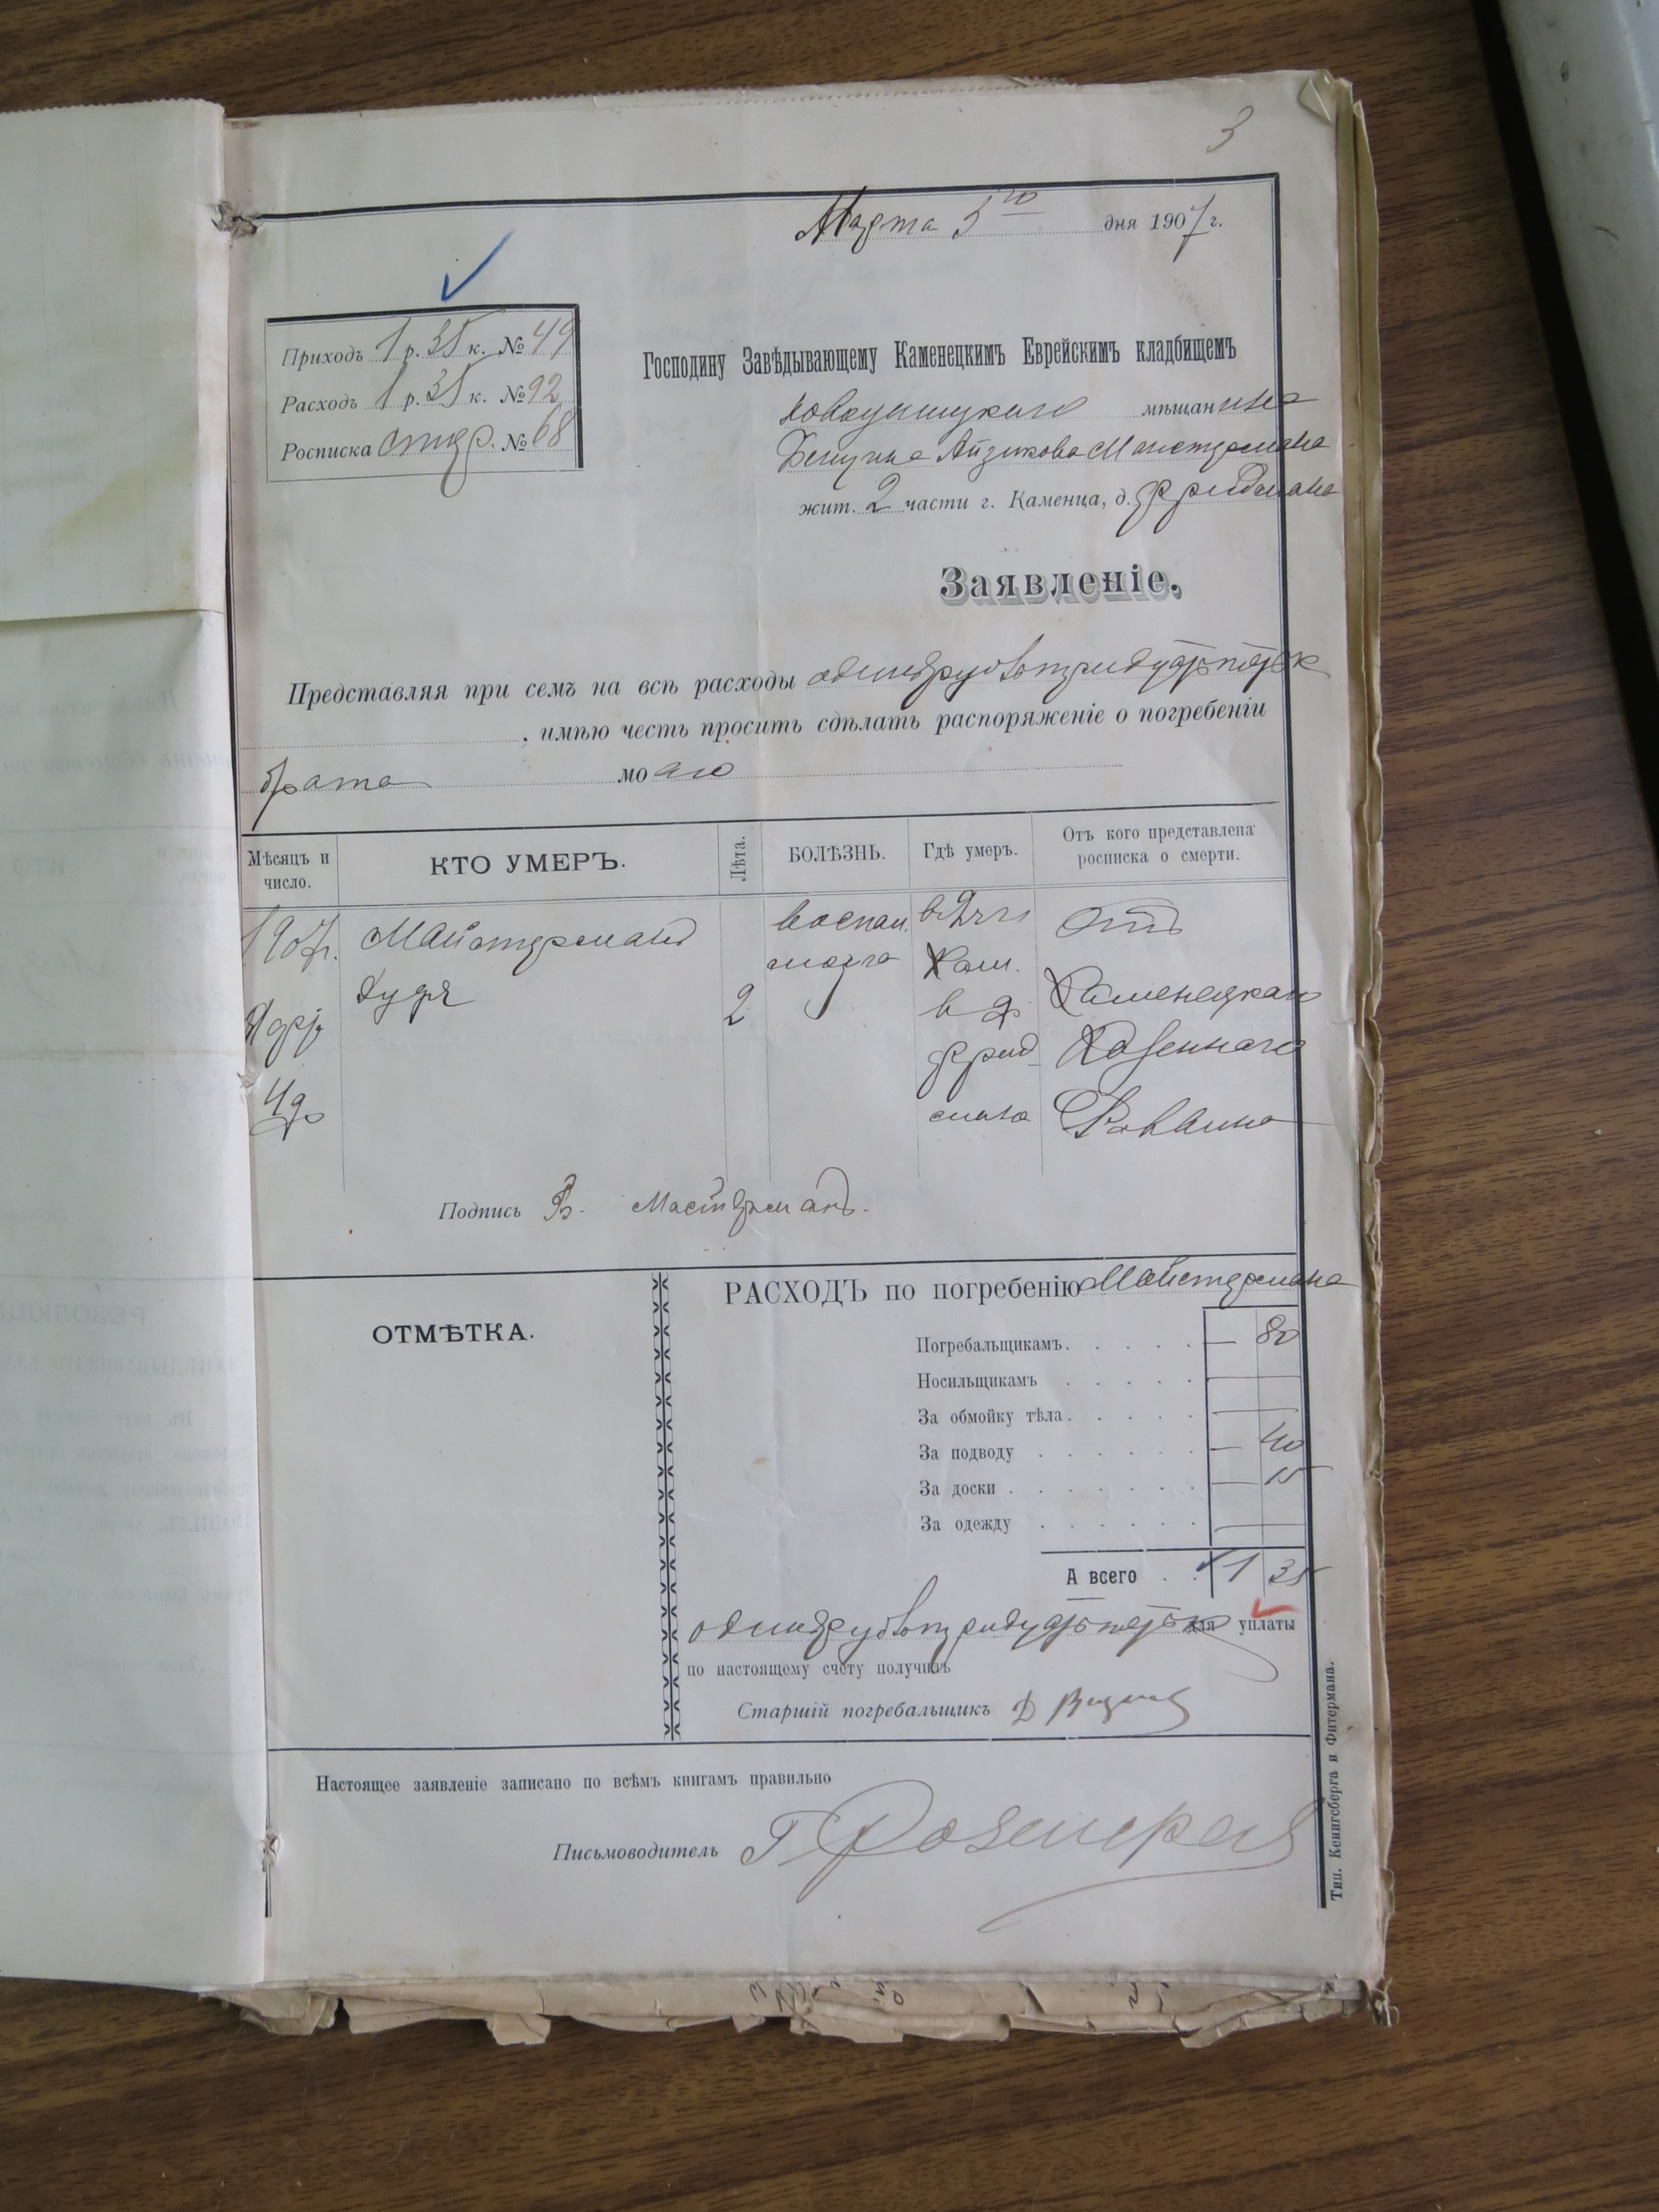 3
Марта 5го дня 1907 г.
Приходъ 1 р. 35 к. № 49
Расходъ 1 р. 35 к. № 92
Росписка № 68
Господину Завѣдывающему Каменецкимъ Еврейскимъ кладбищемъ
новоушицкаго мѣщанина
Айзикова Майстермана
жит. 2 части г. Каменца, д. Фридмана
Заявленіе.
Представляя при семъ на всѣ расходы одинъ руб тридцать пять к
, имѣю честь просить сдѣлать распоряженіе о погребеніи
брата моаго
Мѣсяцъ и число.
КТО УМЕРЪ.
Лѣта.
БОЛѢЗНЬ.
Гдѣ умеръ.
Отъ кого представлена росписка о смерти.
1907г.
Майстерманъ
2
воспал. мозга
в 2 ч г Кам. в д Фридмана
Отъ Каменецкаго Казеннаго Раввина
Подпись Б. Мастерманъ.
ОТМѢТКА.
РАСХОДЪ по погребенію Майстермана
Погребальщикамъ . . . . . — 80
Носильщикамъ . . . . . —
За обмойку тѣла . . . . . —
За подводу . . . . . . — 40
За доски . . . . . . . — 15
За одежду . . . . . . —
А всего . . 1 35
одинъ руб тридцать пять к для уплаты
по настоящему счету получилъ
Старшій погребальщикъ Д
Настоящее заявленіе записано по всѣмъ книгамъ правильно
Письмоводитель Г
Тип. Кенигсберга и Фитермана.